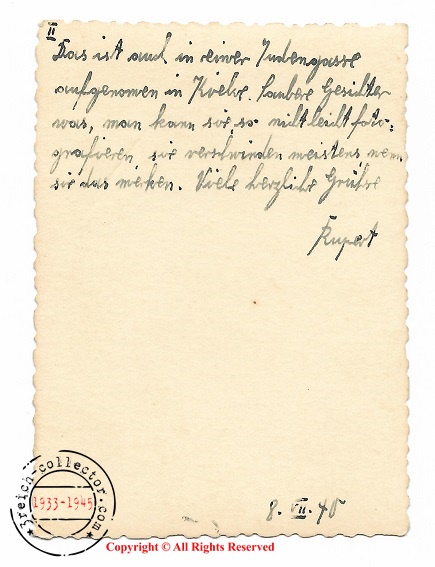 II
Das ist auch in einer Judengasse
aufgenomen in Kielce. Saubere Gesichter
was, man kann sie so nicht leicht foto=
grafieren, sie verschwinden meistens wenn
sie das merken. Viele herzliche Grüße
Rupert
8. VII. 40
3reich-collector.com
1933-1945
Copyright © All Rights Reserved